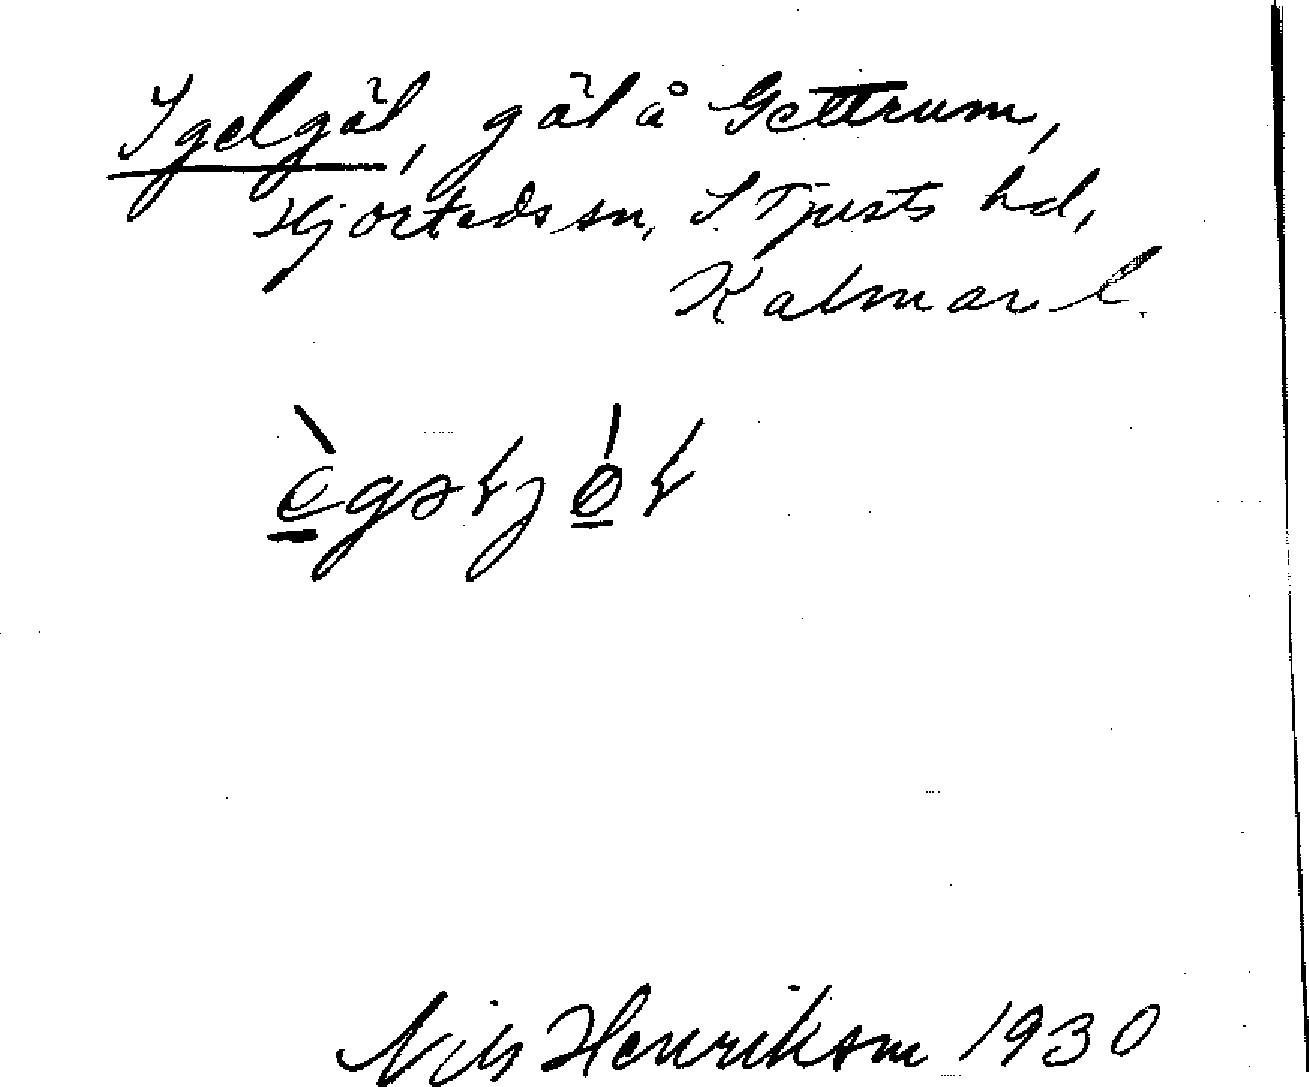 Igelgöl, göl å Gettrum,
Hjorteds sn, S. Tjusts hd,
Kalmar l.
Nils Henrikson 1930